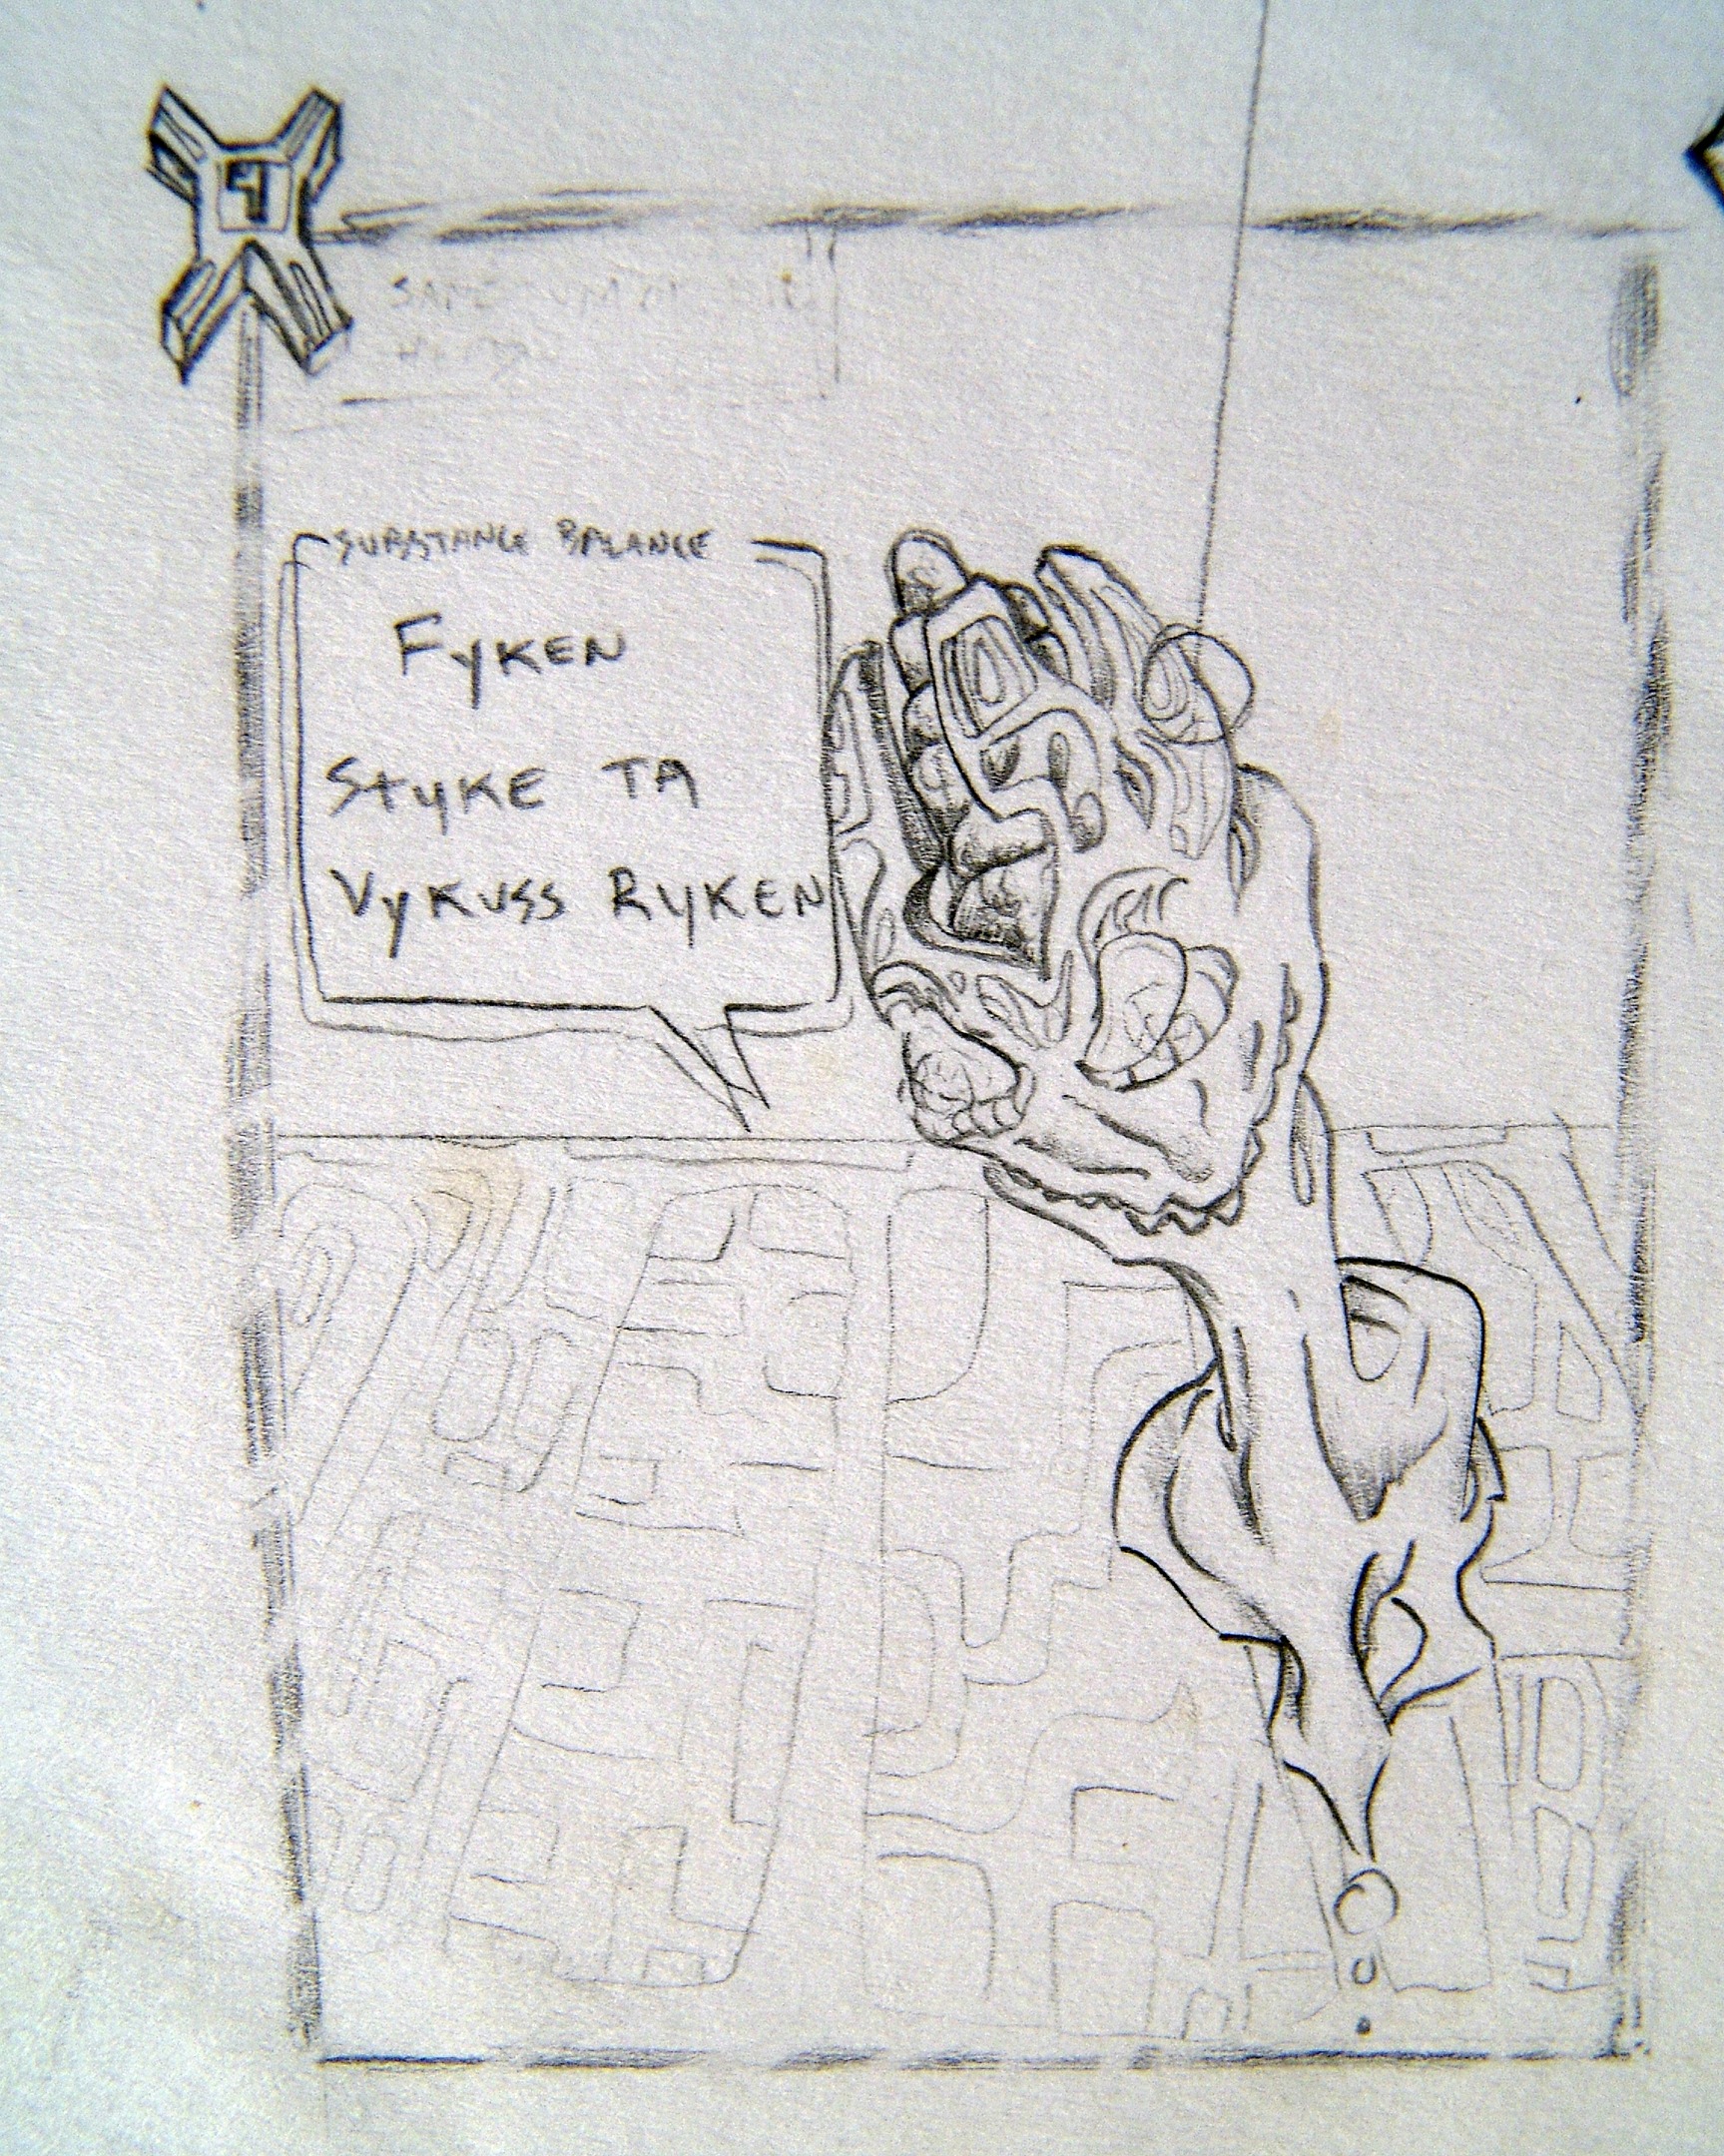 4
SAME
SUBSTANCE BALANCE
FYKEN
STYKE TA
VYKUSS RYKEN